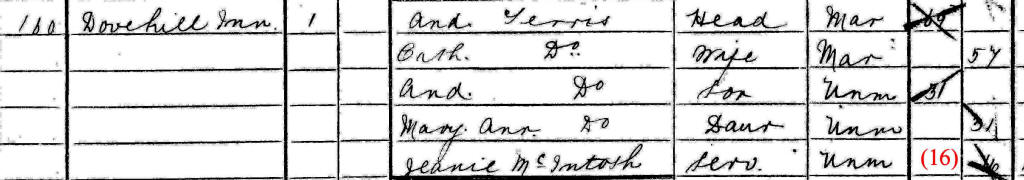 160 Dovehill Inn. 1 And. Ferris Head Mar 69
Cath. Do. Wife Mar 57
And. Do Son Unm 31
Mary Ann. Do Daur Unm 31
Jeanie McIntosh Serv. Unm (16) 16